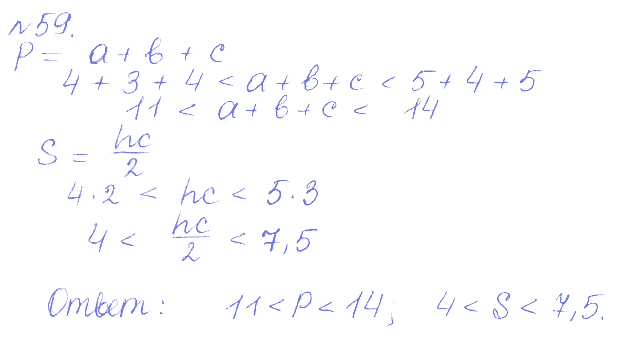 №59.
P = a + b + c
4 + 3 + 4 < a + b + c < 5 + 4 + 5
11 < a + b + c < 14
S = hc/2
4·2 < hc < 5·3
4 < hc/2 < 7,5
Ответ: 11 < P < 14; 4 < S < 7,5.